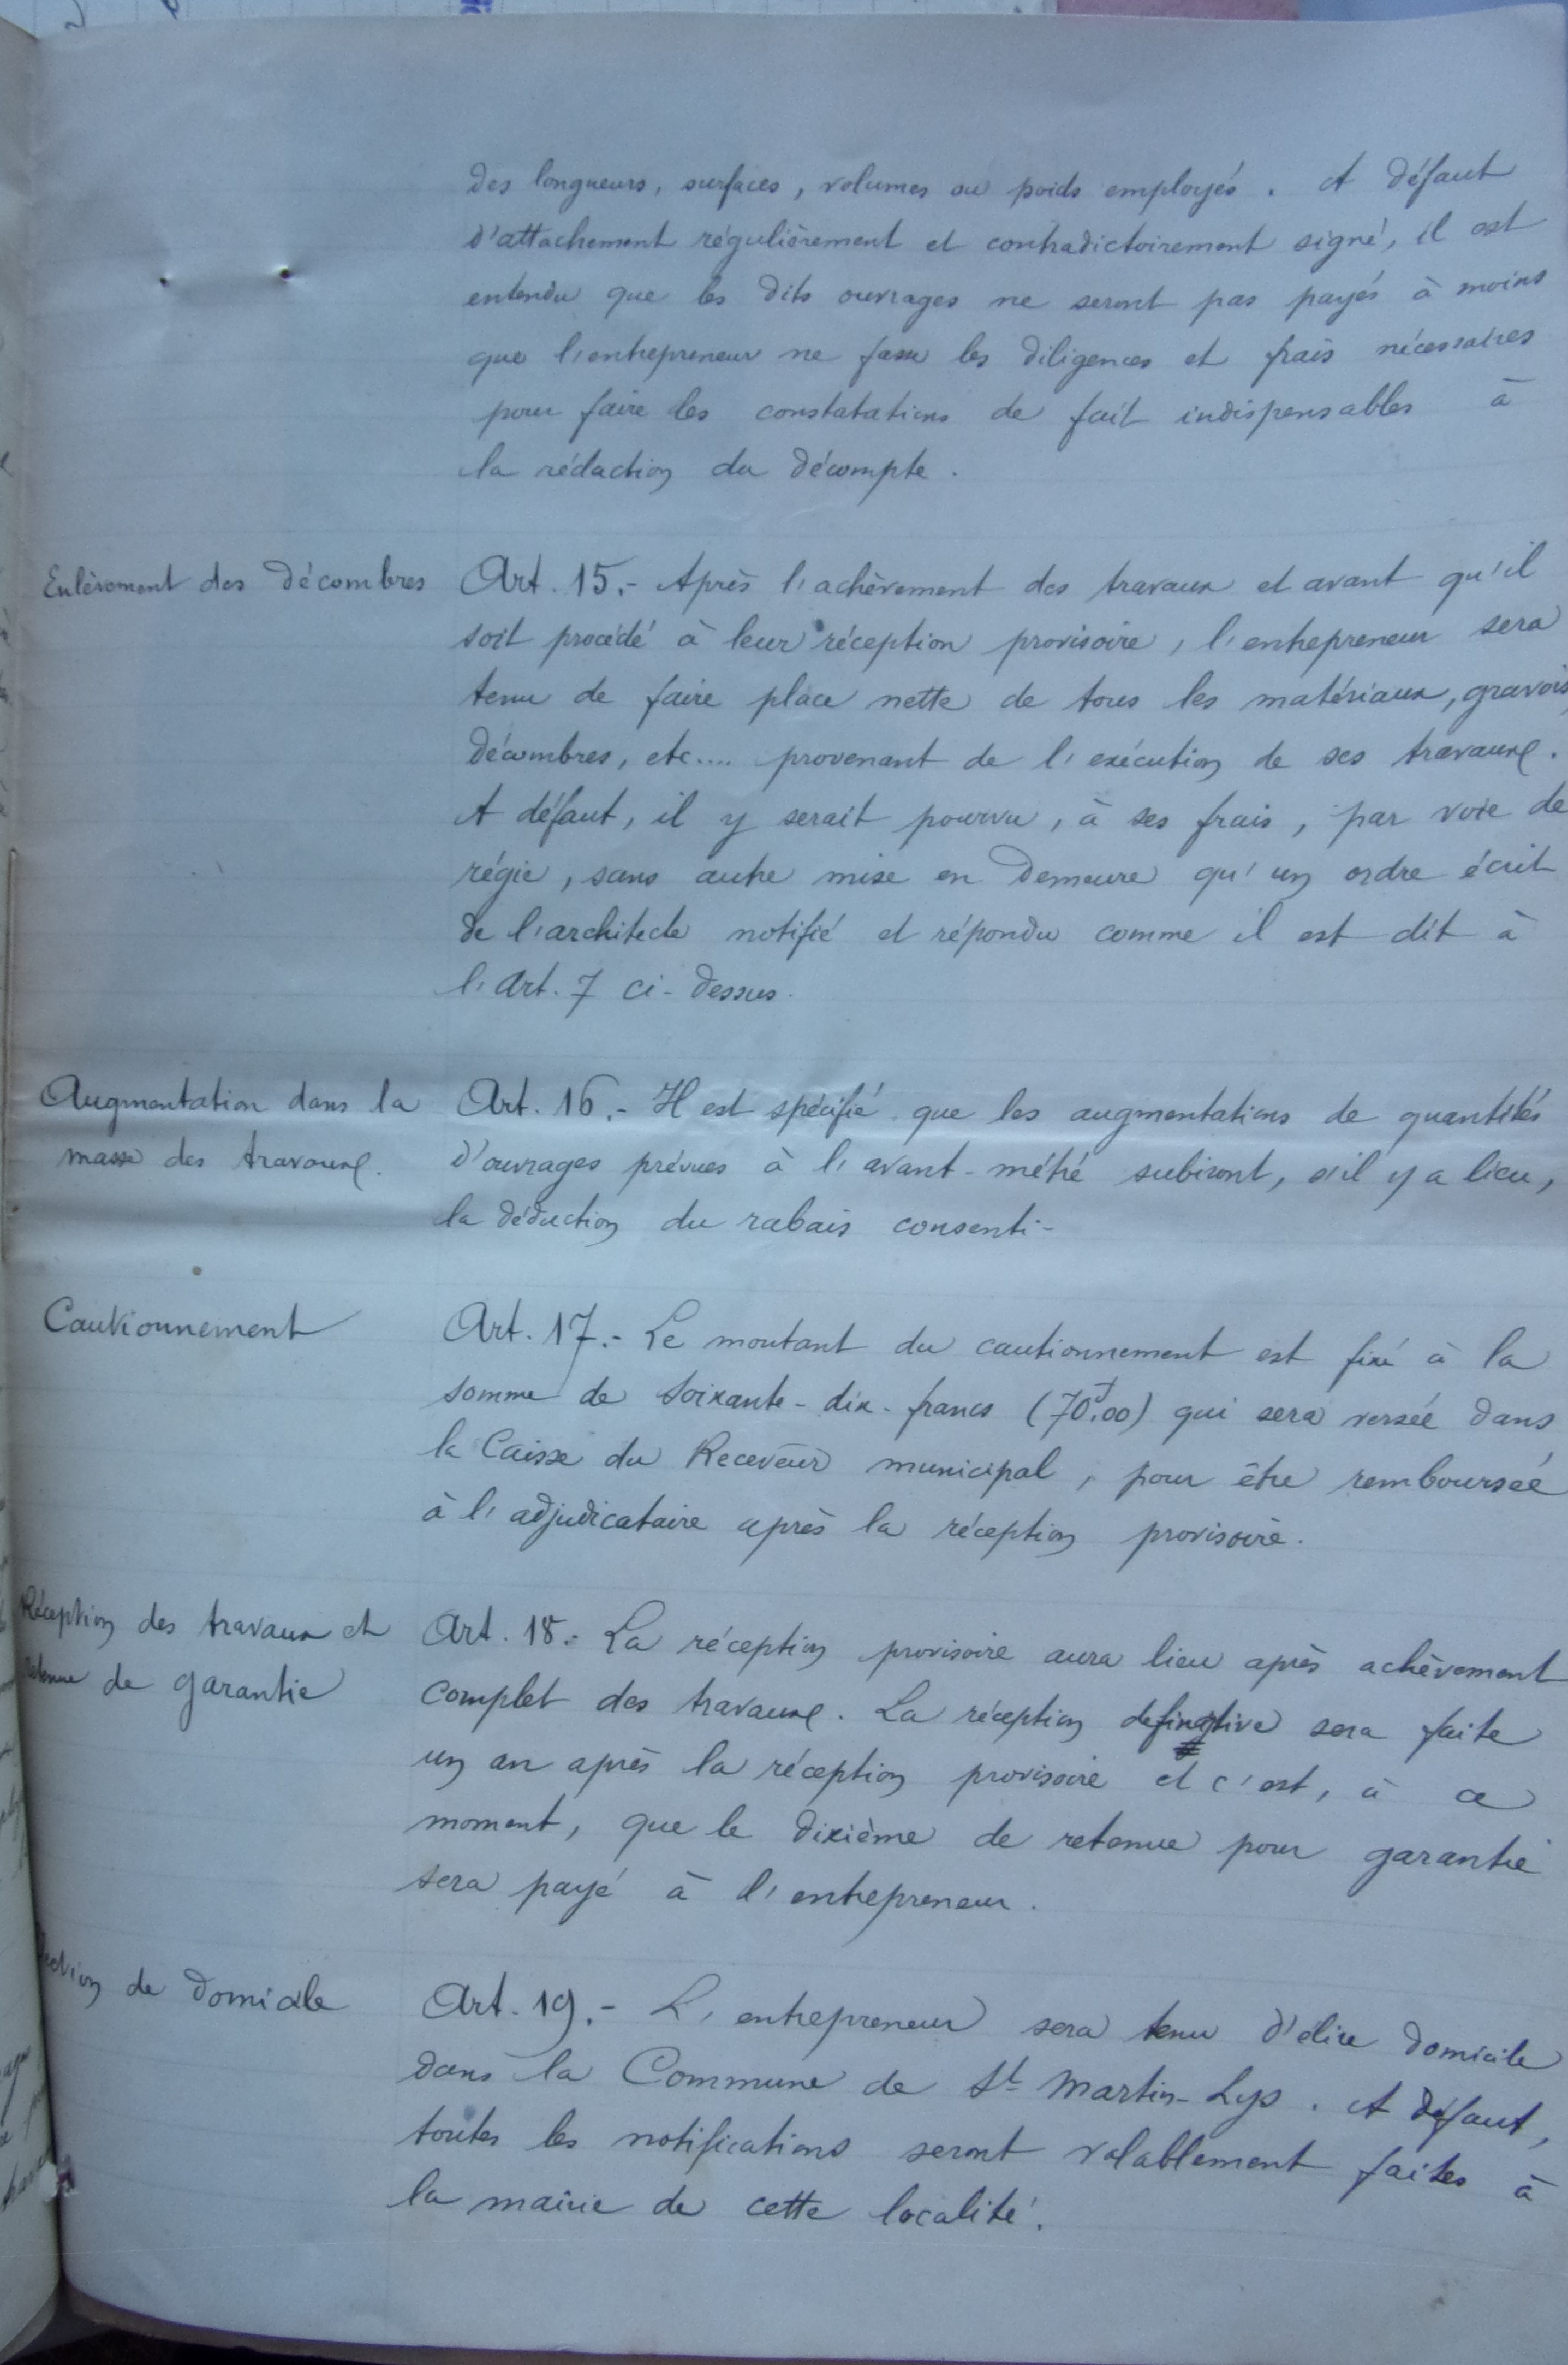 des longueurs, surfaces, volumes ou poids employés. A défaut
d'attachement régulièrement et contradictoirement signé, il est
entendu que les dits ouvrages ne seront pas payés à moins
que l'entrepreneur ne fasse les diligences et frais nécessaires
pour faire les constatations de fait indispensables à
la rédaction du décompte.
Enlèvement des décombres
Art. 15.- Après l'achèvement des travaux et avant qu'il
soit procédé à leur réception provisoire, l'entrepreneur sera
tenu de faire place nette de tous les matériaux, gravois
décombres, etc.... provenant de l'exécution de ses travaux.
A défaut, il y serait pourvu, à ses frais, par voie de
régie, sans autre mise en demeure qu'un ordre écrit
de l'architecte notifié et répondu comme il est dit à
l'Art. 7 ci-dessus.
Augmentation dans la
masse des travaux.
Art. 16.- Il est spécifié que les augmentations de quantités
d'ouvrages prévues à l'avant-métré subiront, s'il y a lieu,
la déduction du rabais consenti-
Cautionnement
Art. 17.- Le montant du cautionnement est fixé à la
somme de soixante-dix-francs (70f.00) qui sera versée dans
la Caisse du Receveur municipal, pour être remboursée
à l'adjudicataire après la réception provisoire.
Réception des travaux et
retenue de garantie
Art. 18.- La réception provisoire aura lieu après achèvement
complet des travaux. La réception definitive sera faite
un an après la réception provisoire et c'est, à ce
moment, que le dixième de retenue pour garantie
sera payé à l'entrepreneur.
de domicile
Art. 19.- L'entrepreneur sera tenu d'élire domicile
dans la Commune de St Martin-Lys. A défaut,
toutes les notifications seront valablement faites à
la mairie de cette localité.